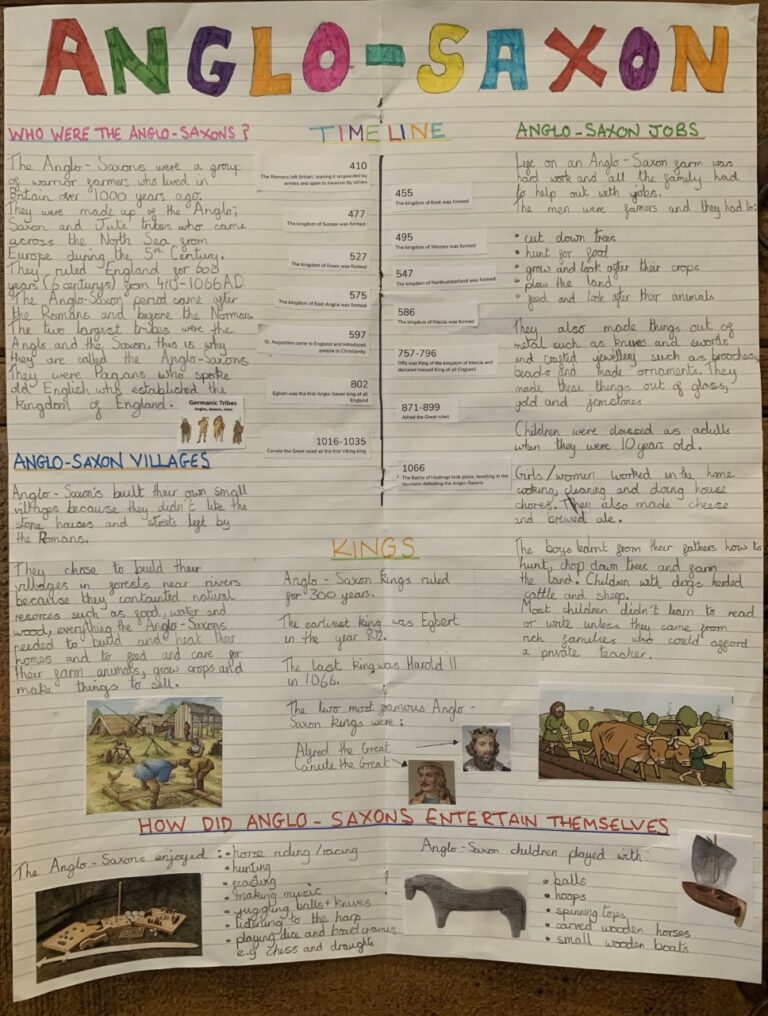 ANGLO-SAXON
WHO WERE THE ANGLO-SAXONS?
The Anglo-Saxons were a group
of warrior farmers who lived in
Britain over 1000 years ago.
They were made up of the Anglo;
Saxon and Jute tribes who came
across the North Sea from
Europe during the 5th Century.
They ruled England for 600
years (6 centurys) from 410-1066AD
The Anglo-Saxon period came after
the Romans and beyore the Normans
The two largest tribes were the
Anglo and the Saxon, this is why
they are called the Anglo-Saxons
They were Pagans who spoke
old English who established the
kingdom of England.
Germanic Tribes
Angles, Saxons, Jutes
ANGLO-SAXON VILLAGES
Anglo-Saxon's built their own small
villages because they didn't like the
stone houses and streets left by
the Romans.
They chose to build their
villages in forests near rivers
because they contained natural
resorces such as food, water and
wood, everything the Anglo-Saxons
needed to build and heat their
homes and to feed and care for
their farm animals, grow crops and
make things to sell.
TIMELINE
410
The Romans left Britain, leaving it unguarded by
armies and open to invasion by others
455
The kingdom of Kent was formed
477
The kingdom of Sussex was formed
495
The kingdom of Wessex was formed
527
The kingdom of Essex was formed
547
The kingdom of Northumberland was formed
575
The kingdom of East Anglia was formed
586
The kingdom of Mercia was formed
597
St. Augustine came to England and introduced
people to Christianity
757-796
Offa was King of the kingdom of Mercia and
declared himself King of all England
802
Egbert was the first Anglo-Saxon king of all
England
871-899
Alfred the Great ruled
1016-1035
Canute the Great ruled as the first Viking king
1066
The Battle of Hastings took place, resulting in the
Normans defeating the Anglo-Saxons
KINGS
Anglo-Saxon Kings ruled
for 300 years.
The earliest king was Egbert
in the year 802.
The last king was Harold II
in 1066.
The two most famous Anglo-
Saxon kings were:
Alfred the Great
Canute the Great
ANGLO-SAXON JOBS
Life on an Anglo-Saxon farm was
hard work and all the family had
to help out with jobs.
The men were farmers and they had to:
• cut down trees
• hunt for food
• grow and look after their crops
• plow the land
• feed and look after their animals
They also made things out of
metal such as knives and swords
and crafted jewellery such as brooches,
beads and made ornaments. They
made these things out of glass,
gold and gemstones
Children were classed as adults
when they were 10 years old.
Girls/women worked in the home
cooking, cleaning and doing house
chores. They also made cheese
and brewed ale.
The boys learnt from their fathers how to
hunt, chop down trees and farm
the land. Children with dogs herded
cattle and sheep.
Most children didn't learn to read
or write unless they came from
rich families who could afford
a private teacher.
HOW DID ANGLO-SAXONS ENTERTAIN THEMSELVES
The Anglo-Saxons enjoyed:
• horse riding/racing
• hunting
• feasting
• making music
• juggling balls + knives
• listening to the harp
• playing dice and board games
e.g chess and draughts
Anglo-Saxon children played with:
• balls
• hoops
• spinning tops
• carved wooden horses
• small wooden boats